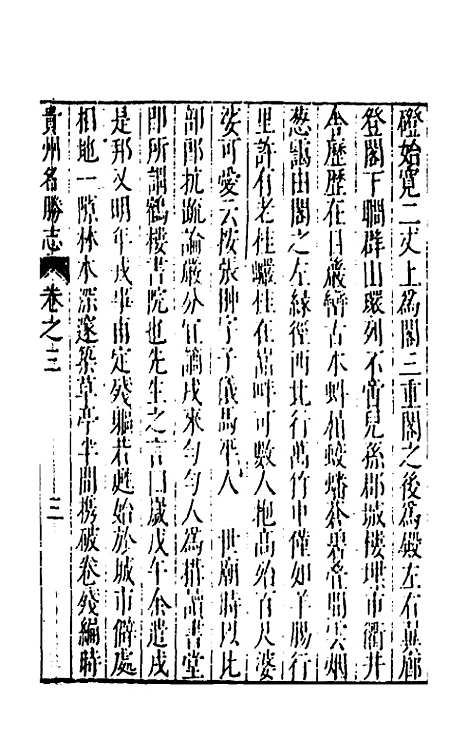 磴始寛二丈上為閣三重閣之後為殿左右異廊
登閣下瞯群山環列不啻兒孫郡城樓堞市衢井
舎歷歷在目巖巒古木虬柏蛟蟠蒼翠疊間雲烟
葱藹由閣之左綠徑西北行萬竹中僅如羊腸行
里許有老桂巖桂在嵓畔可數人抱高殆百尺婆
娑可愛云按張翀字子儀馬平人　世廟時以比
部郎抗疏論嚴分宜謫戍來勻勻人為搆讀書堂
即所謂鶴樓書院也先生之言曰歲戊午余遣戍
是邦又明年戎事甫定殘軀若甦始於城市僻處
相地一隙林木深邃築草亭半間携破卷殘編時
貴州名勝志　卷之三　三